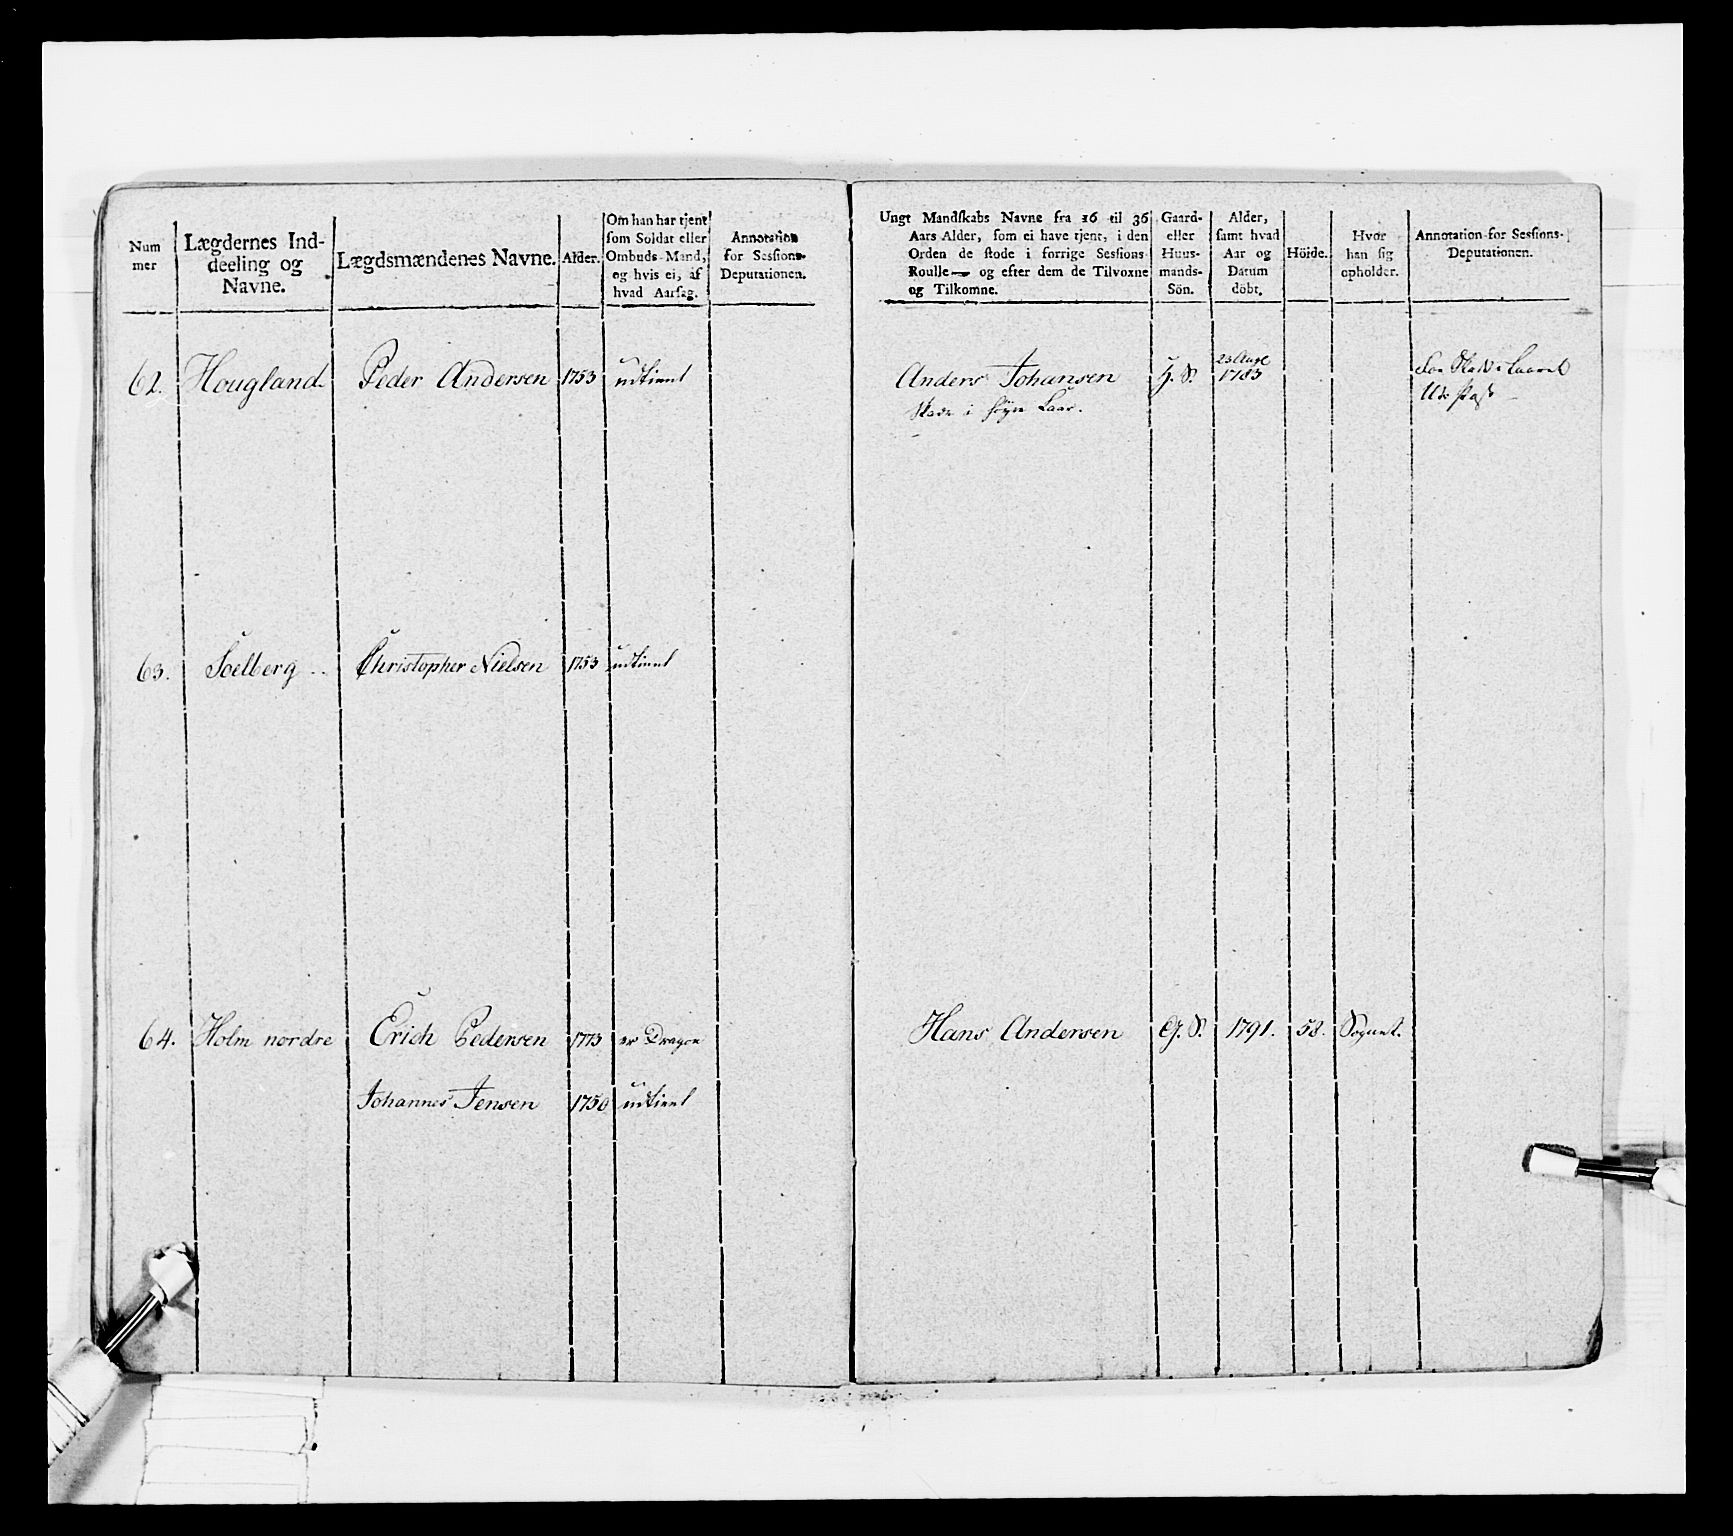 Num
mer
Lægdernes Ind-
deeling og
Navne.
Lægdsmændenes Navne.
Alder.
Om han har tjent
som Soldat eller
Ombuds-Mand,
og hvis ei, af
hvad Aarsag.
Annotation
for Sessions-
Deputationen.
Ungt Mandskabs Navne fra 16 til 36
Aars Alder, som ei have tjent, i den
Orden de stode i forrige Sessions
Roulle — og efter dem de Tilvoxne
og Tilkomne.
Gaard-
eller
Huus-
mands-
Sön.
Alder,
samt hvad
Aar og
Datum
döbt.
Höide.
Hvor
han sig
opholder.
Annotation for Sessions-
Deputationen.
62. Hougland Peder Andersen 1753 udtient
Anders Johansen H. S. 23 Aug 1783
Skade i høyre Laar.
Skade i Laaret
63. Soelberg Christopher Nielsen 1753 udtient
64. Holm nordre Erich Pedersen 1773 er Dragon
Hans Andersen G. S. 1791. 58. Sognet.
Johannes Jensen 1750 udtient